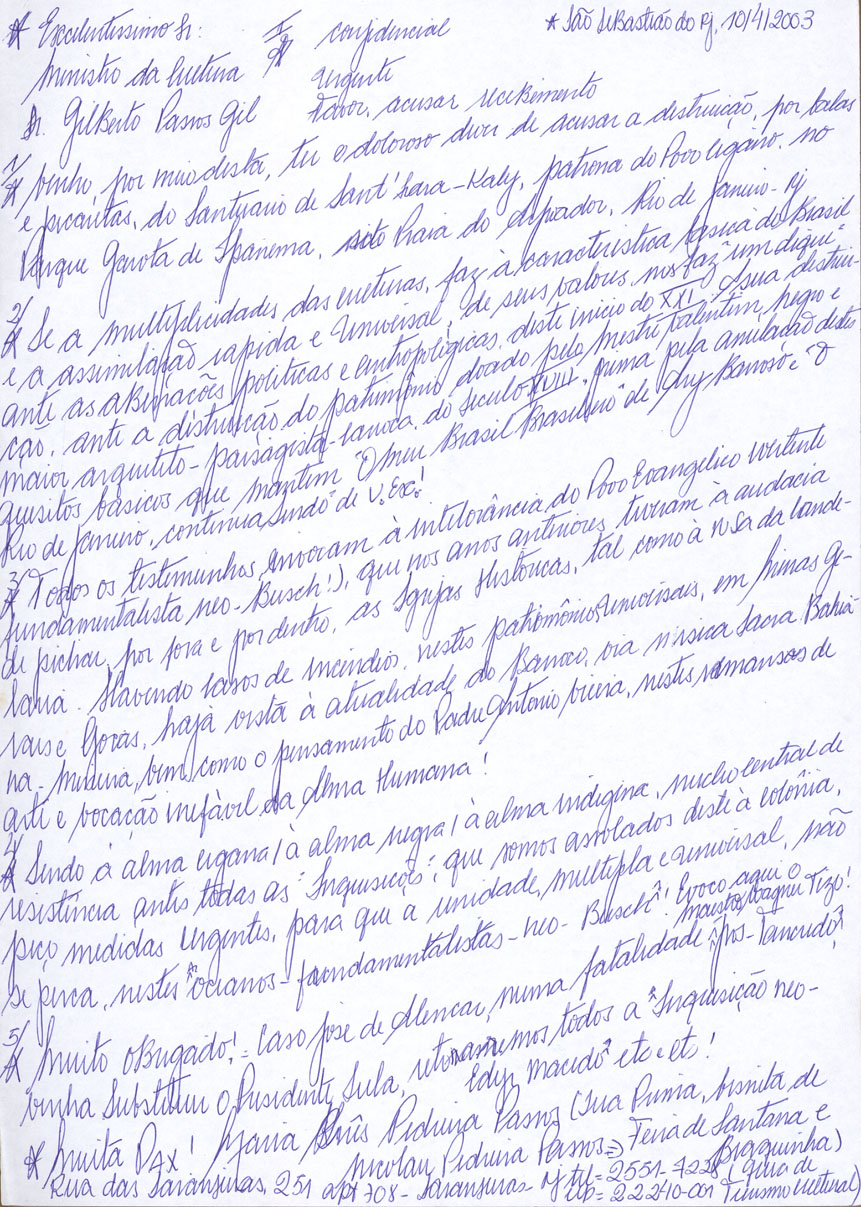 * Excelentissimo Sr: I * confidencial * São Sebastião do Rj, 10/4/2003
Ministro da Cultura urgente
Dr. Gilberto Passos Gil Favor, acusar recebimento
1/ * Venho, por meio desta, ter o doloroso dever de acusar a distruição, por balas
e picaretas, do Santuario de Sant' Sara-Kaly, patrona do Povo Cigano, no
Parque Garota de Ipanema, sito Praia do Arpoador, Rio de Janeiro-Rj
2/ * Se a multiplicidades das culturas, faz à caracteristica básica do Brasil
e a assimilação rapida e universal, de seus valores, nos faz "um digui"
ante as aberrações politicas e antropólgicas, deste inicio do XXI, a sua distrui-
ção, ante a distruição do patrimônio doado pelo mestre Valentim, negro e
maior arquiteto-paisagista-carioca, do século XVIII, prima pela anulação destes
quesitos básicos que mantém "O meu Brasil Brasileiro" de Ary Barroso e "O
Rio de Janeiro, continua sendo" de V. Exc.!
3/ * Todos os testimunhos, evocam à intolerância do Povo Evangélico vertente
fundamentalista neo-Busch!), que nos anos anteriores, tiveram à audacia
de pichar, por fora e por dentro, as Igrejas Históricas, tal como à N Sa da Cande-
laria. Havendo casos de incêndios, nestes patrimônios universais, em Minas Ge-
rais e Goiás, haja vista à atualidade do Barroco, via música Sacra Bahia-
na-Mineira, bem como o pensamento do Padre Antonio Vieira, nestes remansos de
arte e vocação inefável da Alma Humana!
4/ * Sendo à alma cigana / à alma negra / à alma indigina, nucho central de
resistência antes todas as "Inquisições", que somos assolados deste à colônia,
peço medidas urgentes, para que a unidade, multipla e universal, não
se perca, nestes "oceanos-fundamentalistas-neo-Busch"! Evoco aqui o
maestro Wagner Tizo!
5/ * Muito obrigado! = Caso José de Alencar, numa fatalidade "pós-Tancredo",
venha substituir o Presidente Lula, retornaremos todos a "Inquisição neo-
Edyr Macedo" etc e etc!
* Muita Paz! Maria Pedreira Passos (Sua Prima, bisneta de
Nicolau Pedreira Passos => Feira de Santana e
Braguinha)
Rua das Laranjeiras, 251 apt 708 - Laranjeiras - Rj tel= 2551-7228 (guia de
cep= 22240-001 Turismo cultural)